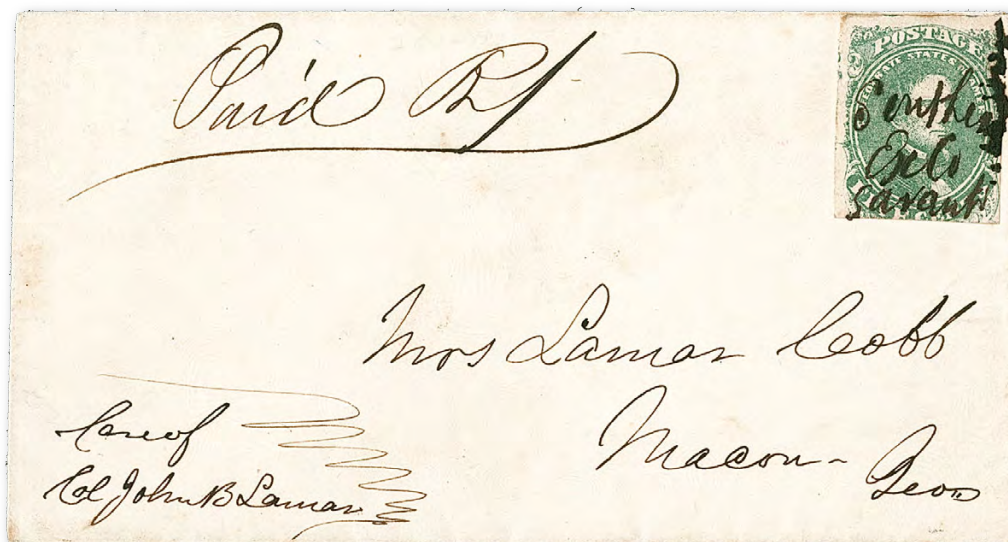 Paid
POSTAGE
Southern
Ex Co
Savanh
Mrs Lamar Cobb
Macon -
Geo
Care of
Col John B Lamar